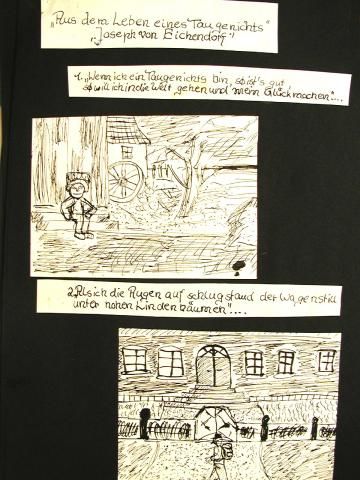 „Aus dem Leben eines Taugenichts"
„Joseph von Eichendorf"
1. „Wenn ich ein Taugenichts bin, so ist's gut,
so will ich in die Welt gehen und mein Glück machen"....
2. „Als ich die Augen aufschlug stand der Wagen still
unter hohen Lindenbäumen"....